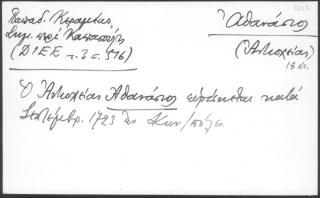 Παπαδ. Κεραμεύς
Συμ. περί Καπασούλη
(ΔΙΕΕ τ. 3 σ. 516)
Ἀθανάσιος
(Ἀντιοχείας)
18 αι.
Ὁ Ἀντιοχείας Ἀθανάσιος εὑρίσκεται κατά
Σεπτέμβρ. 1723 ἐν Κων/πόλει